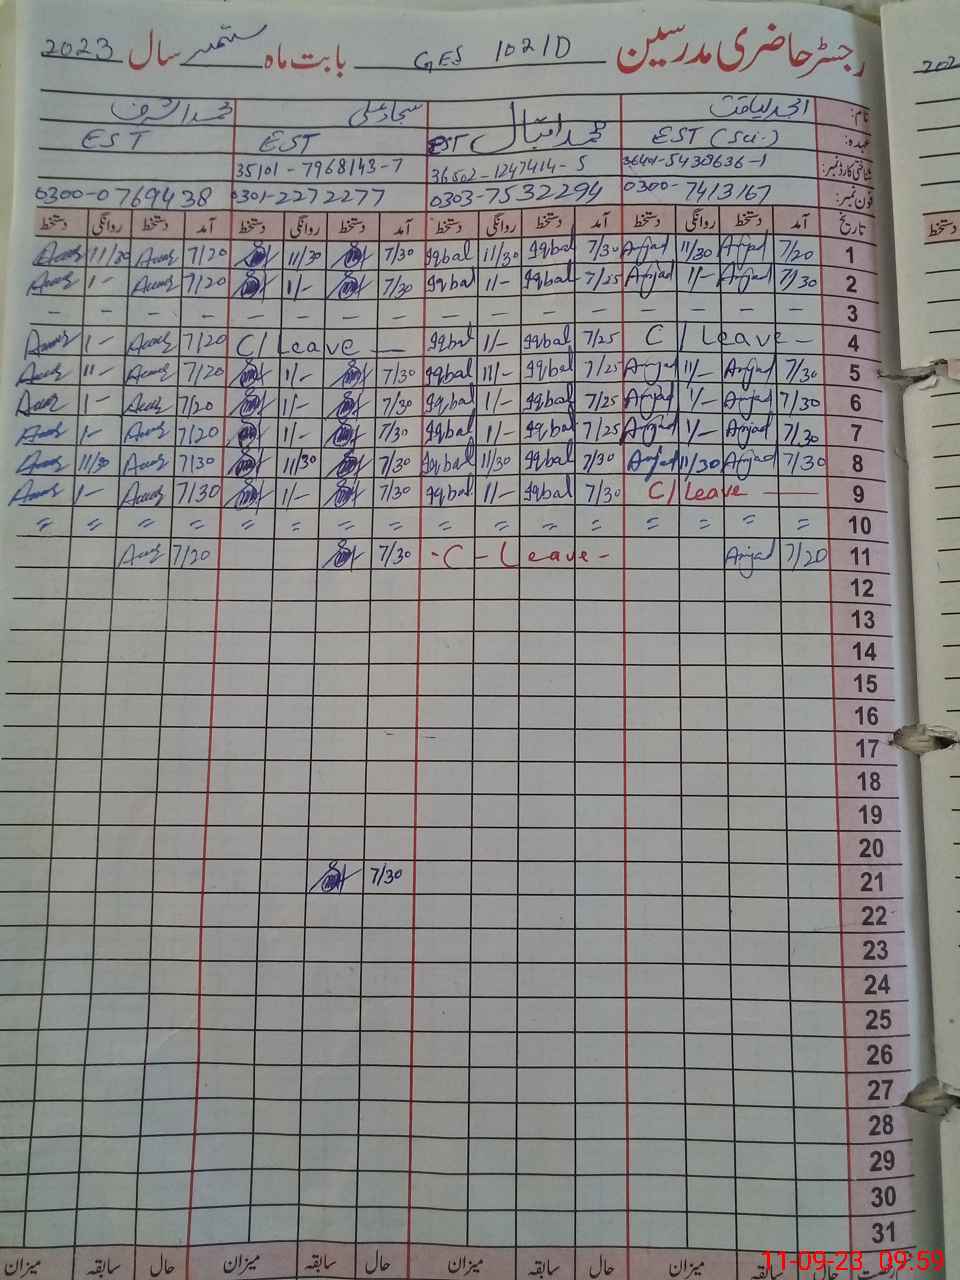 رجسٹر حاضری مدرسین GES 102/D بابت ماہ ستمبر سال 2023
نام: امجد لیاقت سجاد علی محمد اشرف
عہدہ: EST (Sci.) محمد اقبال EST EST EST
شناختی کارڈ نمبر: 36502-1247414-5 35101-7968143-7
فون نمبر: 0300-7413167 0303-7532294 0301-2272277 0300-0769438
تاریخ آمد دستخط روانگی دستخط آمد دستخط روانگی دستخط آمد دستخط روانگی دستخط آمد دستخط روانگی دستخط
1 7/20 Amjad 11/30 Amjad 7/30 Iqbal 11/30 Iqbal 7/30 11/30 7/20 11/30
2 7/30 Amjad 1/- Amjad 7/25 Iqbal 1/- Iqbal 7/30 1/- 7/20 1/-
3 - - - - - - - - - - - - - - - -
4 C/Leave - 7/25 Iqbal 1/- Iqbal C/Leave - 7/20 1/-
5 7/30 Amjad 1/- Amjad 7/25 Iqbal 1/- Iqbal 7/30 1/- 7/20 1/-
6 7/30 Amjad 1/- Amjad 7/25 Iqbal 1/- Iqbal 7/30 1/- 7/20 1/-
7 7/30 Amjad 1/- Amjad 7/25 Iqbal 1/- Iqbal 7/30 1/- 7/20 1/-
8 7/30 Amjad 11/30 Amjad 7/30 Iqbal 11/30 Iqbal 7/30 11/30 7/30 11/30
9 C/Leave - 7/30 Iqbal 1/- Iqbal 7/30 1/- 7/30 1/-
10 = = = = = = = = = = = = = = = =
11 7/20 Amjad - C - Leave - 7/30 7/20
12
13
14
15
16
17
18
19
20
21 7/30
22
23
24
25
26
27
28
29
30
31
حال سابقہ میزان حال سابقہ میزان حال سابقہ میزان حال سابقہ میزان
11-09-23 09:59
202
دستخط